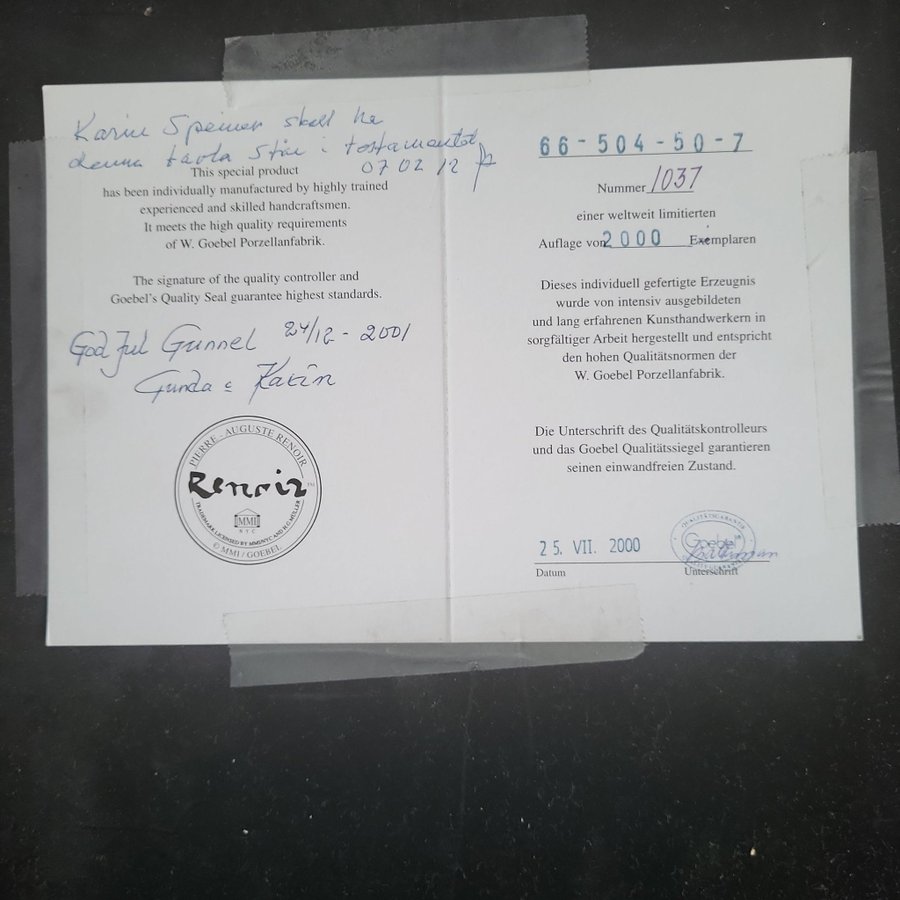 Karin Speiner skall ha
denna tavla Står i testamentet
07 02 12
This special product
has been individually manufactured by highly trained
experienced and skilled handcraftsmen.
It meets the high quality requirements
of W. Goebel Porzellanfabrik.
The signature of the quality controller and
Goebel's Quality Seal guarantee highest standards.
God Jul Gunnel 24/12 - 2001
Gunda & Karin
PIERRE - AUGUSTE RENOIR
Renoir
TM
MMI
NYC
TRADEMARK LICENSED BY MMI/NYC AND H.G. MÜLLER
© MMI / GOEBEL
66-504-50-7
Nummer 1037
einer weltweit limitierten
Auflage von 2000 Exemplaren
Dieses individuell gefertigte Erzeugnis
wurde von intensiv ausgebildeten
und lang erfahrenen Kunsthandwerkern in
sorgfältiger Arbeit hergestellt und entspricht
den hohen Qualitätsnormen der
W. Goebel Porzellanfabrik.
Die Unterschrift des Qualitätskontrolleurs
und das Goebel Qualitätssiegel garantieren
seinen einwandfreien Zustand.
QUALITÄTSGARANTIE
Goebel
25. VII. 2000
Datum Unterschrift